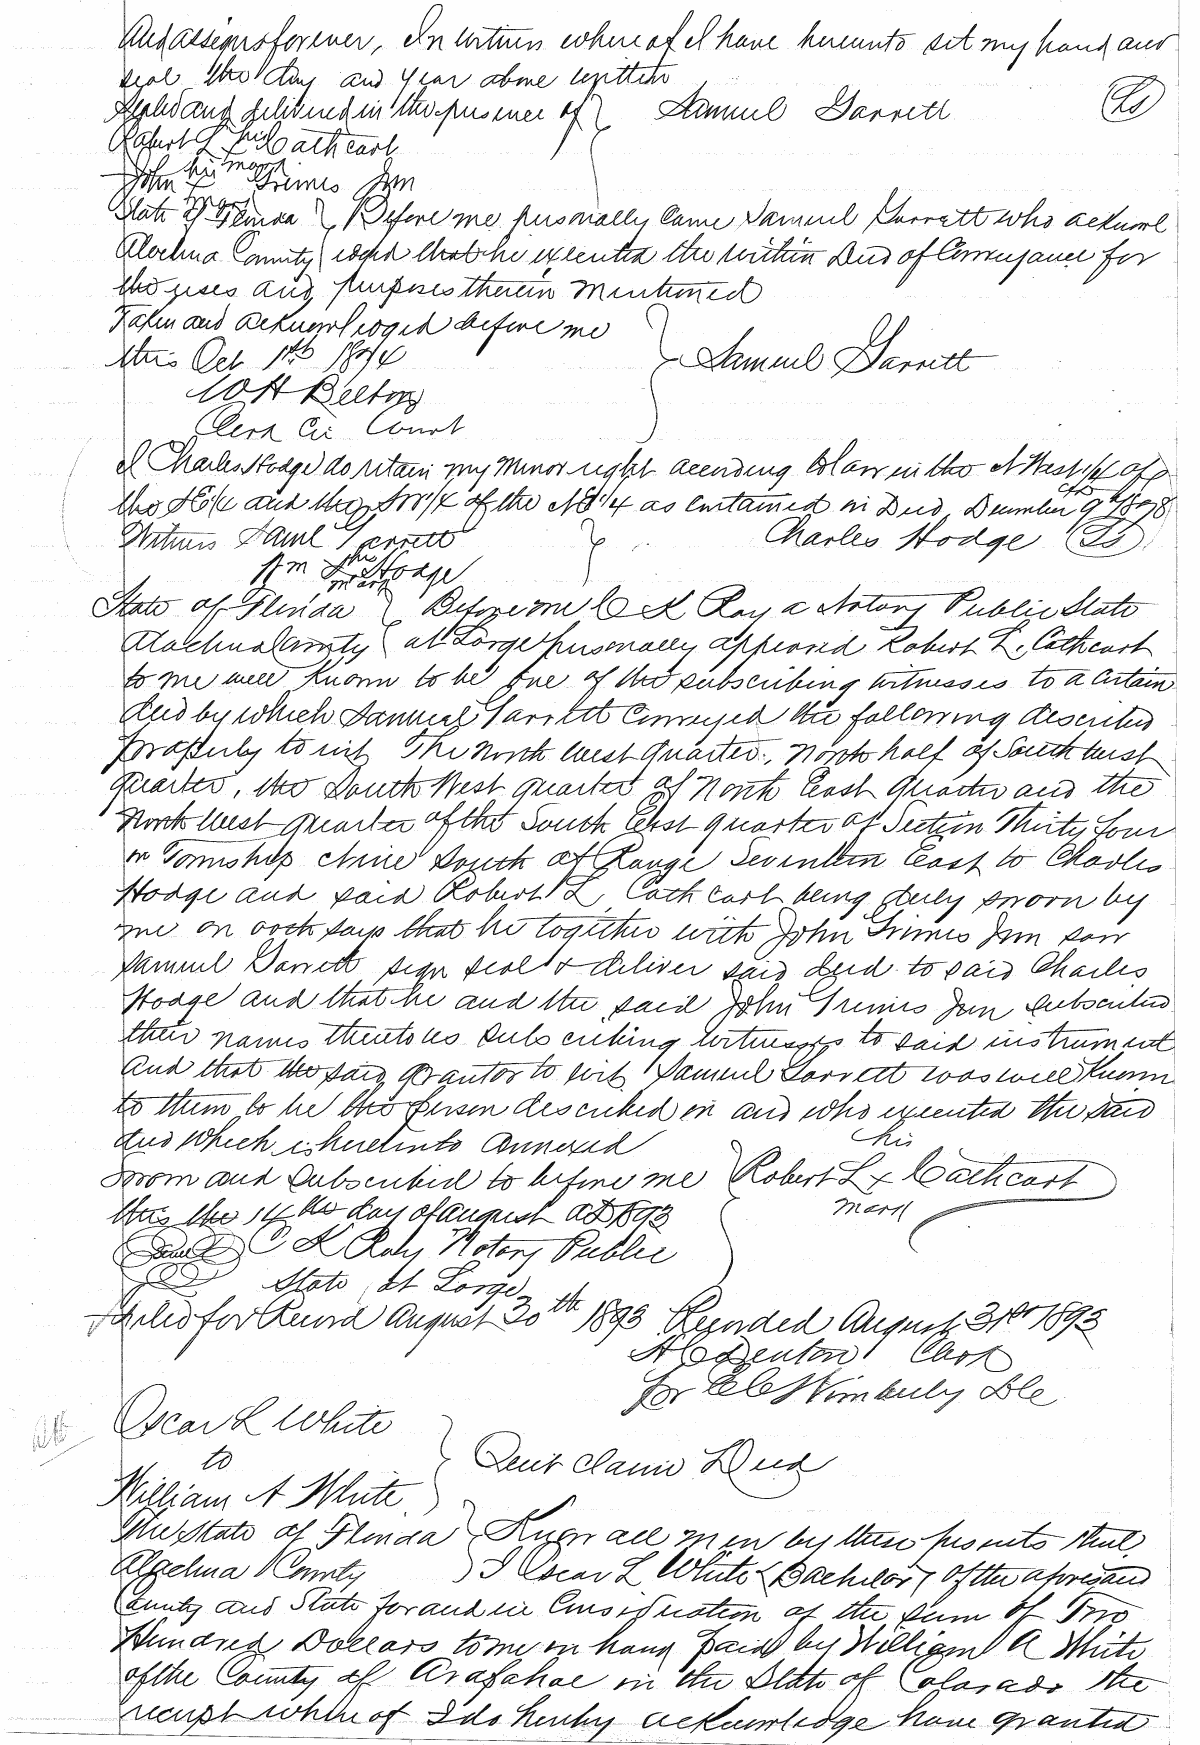 And assigns forever, In witness where of I have hereunto set my hand and
seal the day and year above written
Sealed and delivered in the presence of } Samuel Garrett (LS)
Robert L his Cathcart
John his mark Grimes Jun
mark
State of Florida } Before me personally came Samuel Garrett who acknowl
Alachua County } edged that he executed the within Deed of Conveyance for
the uses and purposes therein mentioned
Taken and acknowledged before me
this Oct 1th 1874 } Samuel Garrett
W H Belton
Clerk Cir Court
I Charles Hodge do retain my minor right according to law in the N West 1/4 of
the SE 1/4 and the SW 1/4 of the NE 1/4 as contained in Deed, December 9th 1878
Witness Saml Garrett } Charles Hodge (LS)
Wm his x Hodge
mark
State of Florida } Before me C K Ray a Notary Public State
Alachua County } at Large personally appeared Robert L. Cathcart
to me well known to be one of the subscribing witnesses to a certain
deed by which Samuel Garrett conveyed the following described
property to wit The North West quarter, North half of South West
quarter, the South West quarter of North East quarter and the
North West quarter of the South East quarter of Section Thirty four
in Township Nine South of Range Seventeen East to Charles
Hodge and said Robert L Cathcart being duly sworn by
me on oath says that he together with John Grimes Jun saw
Samuel Garrett sign seal & deliver said deed to said Charles
Hodge and that he and the said John Grimes Jun subscribed
their names thereto as subscribing witnesses to said instrument
and that the said grantor to wit Samuel Garrett was well known
to them to be the person described in and who executed the said
deed which is hereinto annexed
Sworn and subscribed to before me } Robert L his x mark Cathcart
this the 14th day of August AD 1893
C K Ray Notary Public
State at Large
Filed for Record August 30th 1893 Recorded August 31st 1893
H C Denton Clerk
for C C Wimberly D C
Oscar L White
to } Quit Claim Deed
William A White
The State of Florida } Know all men by these presents that
Alachua County } I Oscar L White (Bachelor) of the aforesaid
County and State for and in Consideration of the sum of Two
Hundred Dollars to me in hand paid by William A White
of the County of Arapahoe in the State of Colorado the
receipt where of I do hereby acknowledge have granted